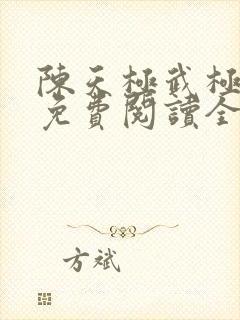 陳天極武極
免費閱讀全
方斌